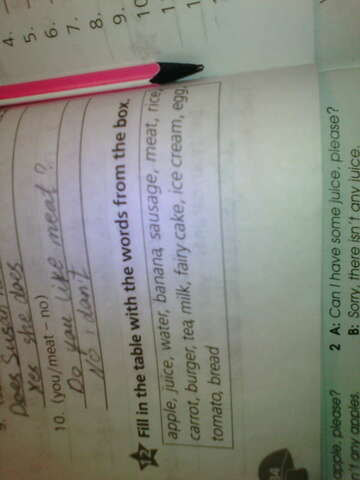 4.
5.
6.
7.
8.
9.
Does
Yes she does
10. (you/meat – no)
Do you like meat?
No I don't
12 Fill in the table with the words from the box.
apple, juice, water, banana, sausage, meat, rice,
carrot, burger, tea, milk, fairy cake, ice cream, egg,
tomato, bread
apple, please?
n't any apples.
2 A: Can I have some juice, please?
B: Sorry, there isn't any juice.